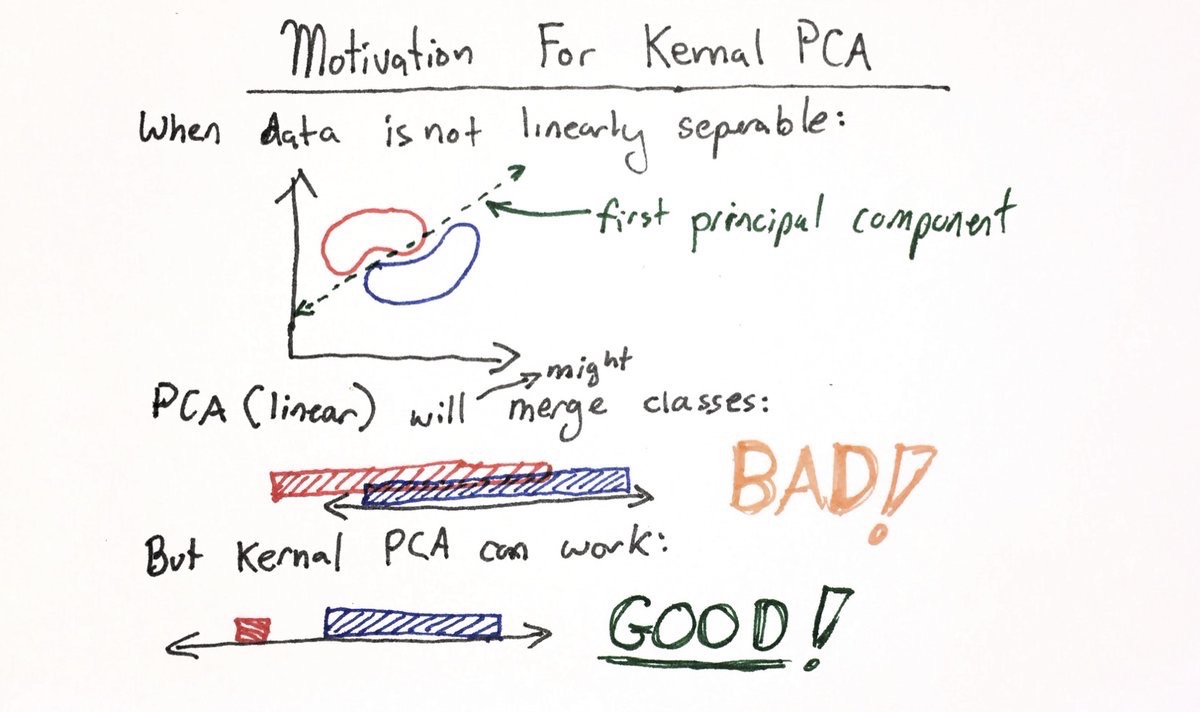 Motivation For Kernal PCA
When data is not linearly seperable:
first principal component
might
PCA (linear) will merge classes:
BAD!
But Kernal PCA can work:
GOOD!